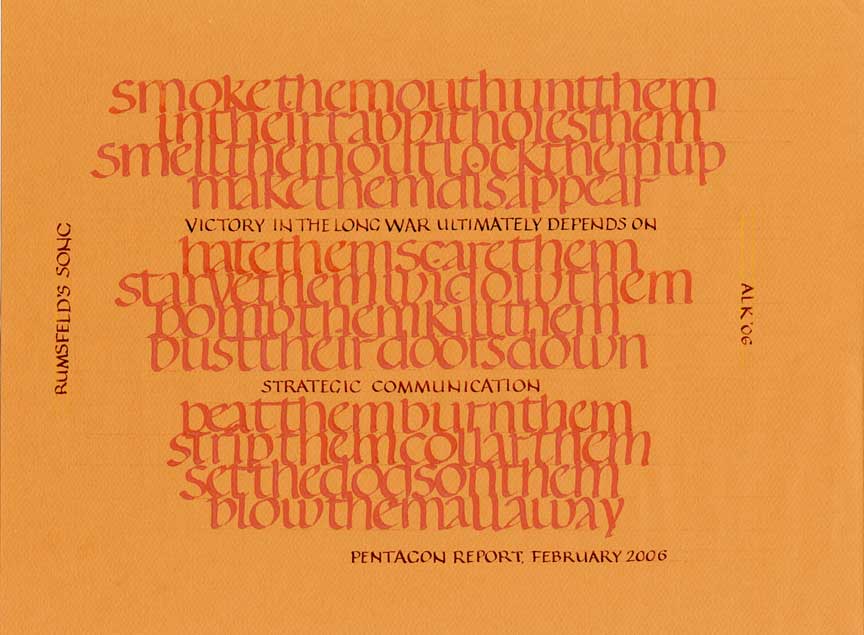 smokethemouthuntthem
intheirrabbitholesthem
smellthemoutlockthemup
makethemdisappear
VICTORY IN THE LONG WAR ULTIMATELY DEPENDS ON
hatethemscarethem
starvethemwidowthem
bombthemkillthem
busttheirdoorsdown
STRATEGIC COMMUNICATION
beatthemburnthem
stripthemcollarthem
setthedogsonthem
blowthemallaway
PENTAGON REPORT, FEBRUARY 2006
RUMSFELD'S SONG
ALK '06